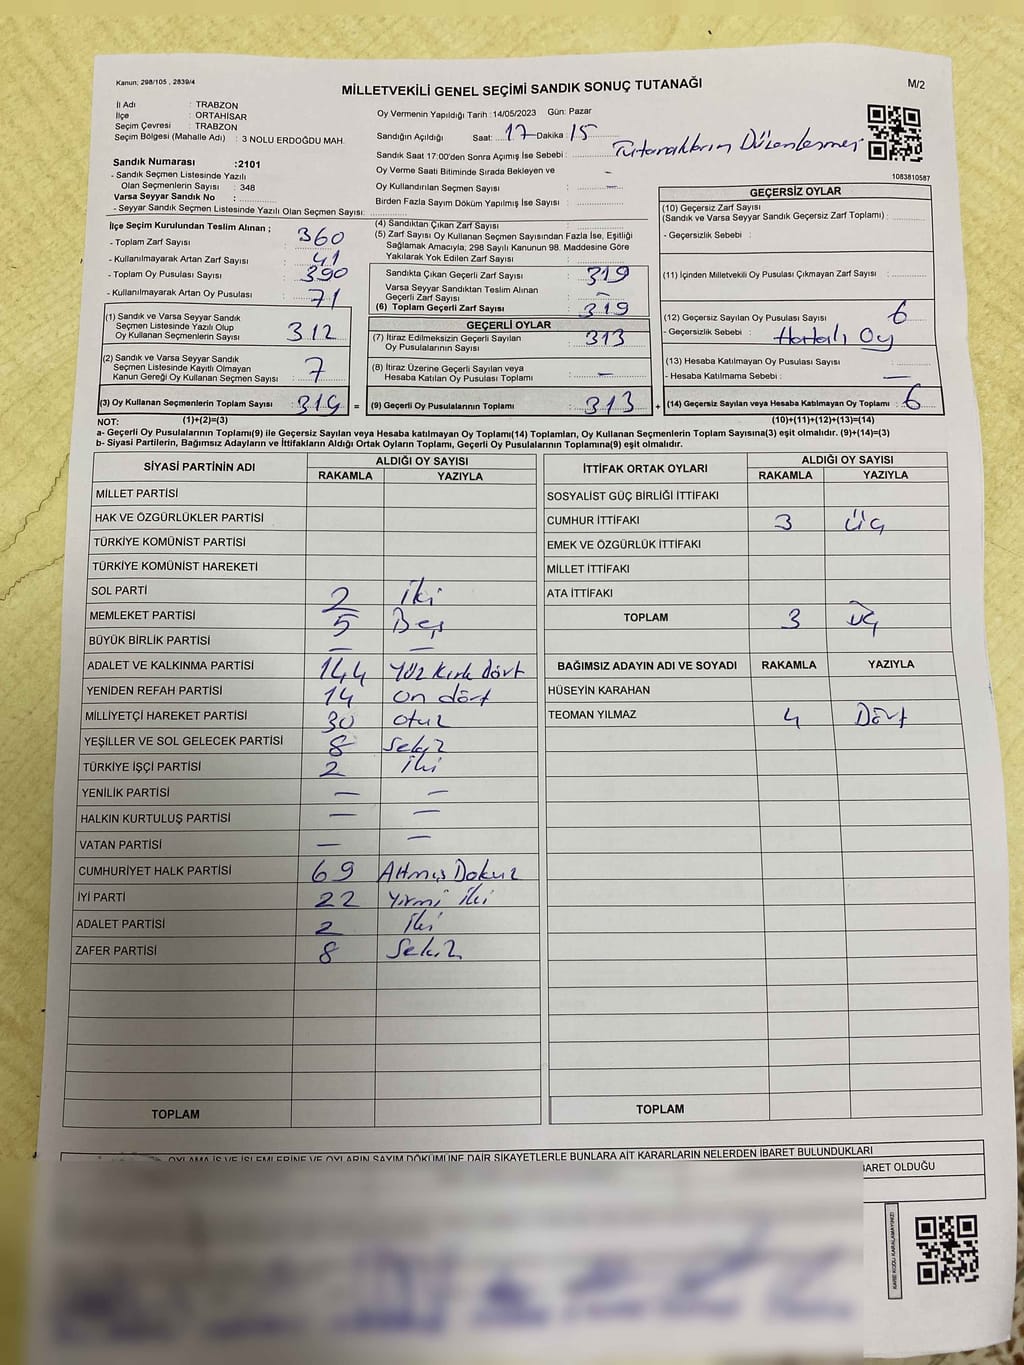 Kanun; 298/105 , 2839/4
MİLLETVEKİLİ GENEL SEÇİMİ SANDIK SONUÇ TUTANAĞI
M/2
İl Adı : TRABZON
İlçe : ORTAHİSAR
Seçim Çevresi : TRABZON
Seçim Bölgesi (Mahalle Adı) : 3 NOLU ERDOĞDU MAH.
Oy Vermenin Yapıldığı Tarih : 14/05/2023 Gün: Pazar
Sandığın Açıldığı Saat: 17 Dakika 15
Sandık Saat 17:00'den Sonra Açımış İse Sebebi : Tutanakların Düzenlenmesi
Oy Verme Saati Bitiminde Sırada Bekleyen ve
Oy Kullandırılan Seçmen Sayısı : —
Birden Fazla Sayım Döküm Yapılmış İse Sayısı :
1083810587
Sandık Numarası :2101
- Sandık Seçmen Listesinde Yazılı
Olan Seçmenlerin Sayısı : 348
Varsa Seyyar Sandık No :
- Seyyar Sandık Seçmen Listesinde Yazılı Olan Seçmen Sayısı:
İlçe Seçim Kurulundan Teslim Alınan ;
- Toplam Zarf Sayısı : 360
- Kullanılmayarak Artan Zarf Sayısı : 41
- Toplam Oy Pusulası Sayısı : 390
- Kullanılmayarak Artan Oy Pusulası : 71
(1) Sandık ve Varsa Seyyar Sandık
Seçmen Listesinde Yazılı Olup
Oy Kullanan Seçmen Sayısı : 312
(2) Sandık ve Varsa Seyyar Sandık
Seçmen Listesinde Kayıtlı Olmayan
Kanun Gereği Oy Kullanan Seçmen Sayısı : 7
(3) Oy Kullanan Seçmenlerin Toplam Sayısı : 319 =
(4) Sandıktan Çıkan Zarf Sayısı :
(5) Zarf Sayısı Oy Kullanan Seçmen Sayısından Fazla İse, Eşitliği
Sağlamak Amacıyla; 298 Sayılı Kanunun 98. Maddesine Göre
Yakılarak Yok Edilen Zarf Sayısı :
Sandıkta Çıkan Geçerli Zarf Sayısı : 319
Varsa Seyyar Sandıktan Teslim Alınan
Geçerli Zarf Sayısı : —
(6) Toplam Geçerli Zarf Sayısı : 319
GEÇERLİ OYLAR
(7) İtiraz Edilmeksizin Geçerli Sayılan
Oy Pusulalarının Sayısı : 313
(8) İtiraz Üzerine Geçerli Sayılan veya
Hesaba Katılan Oy Pusulası Toplamı : —
(9) Geçerli Oy Pusulalarının Toplamı : 313 +
GEÇERSİZ OYLAR
(10) Geçersiz Zarf Sayısı
(Sandık ve Varsa Seyyar Sandık Geçersiz Zarf Toplamı) :
- Geçersizlik Sebebi :
(11) İçinden Milletvekili Oy Pusulası Çıkmayan Zarf Sayısı :
(12) Geçersiz Sayılan Oy Pusulası Sayısı : 6
- Geçersizlik Sebebi : Hatalı Oy
(13) Hesaba Katılmayan Oy Pusulası Sayısı
- Hesaba Katılmama Sebebi : —
(14) Geçersiz Sayılan veya Hesaba Katılmayan Oy Toplamı : 6
NOT: (1)+(2)=(3) (10)+(11)+(12)+(13)=(14)
a- Geçerli Oy Pusulalarının Toplamı(9) ile Geçersiz Sayılan veya Hesaba katılmayan Oy Toplamı(14) Toplamları, Oy Kullanan Seçmenlerin Toplam Sayısına(3) eşit olmalıdır. (9)+(14)=(3)
b- Siyasi Partilerin, Bağımsız Adayların ve İttifakların Aldığı Ortak Oyların Toplamı, Geçerli Oy Pusulalarının Toplamına(9) eşit olmalıdır.
SİYASİ PARTİNİN ADI ALDIĞI OY SAYISI
RAKAMLA YAZIYLA
MİLLET PARTİSİ
HAK VE ÖZGÜRLÜKLER PARTİSİ
TÜRKİYE KOMÜNİST PARTİSİ
TÜRKİYE KOMÜNİST HAREKETİ
SOL PARTİ 2 İki
MEMLEKET PARTİSİ 5 Beş
BÜYÜK BİRLİK PARTİSİ — —
ADALET VE KALKINMA PARTİSİ 144 Yüz Kırk Dört
YENİDEN REFAH PARTİSİ 14 on dört
MİLLİYETÇİ HAREKET PARTİSİ 30 otuz
YEŞİLLER VE SOL GELECEK PARTİSİ 8 Sekiz
TÜRKİYE İŞÇİ PARTİSİ 2 İki
YENİLİK PARTİSİ — —
HALKIN KURTULUŞ PARTİSİ — —
VATAN PARTİSİ — —
CUMHURİYET HALK PARTİSİ 69 Altmış Dokuz
İYİ PARTİ 22 Yirmi İki
ADALET PARTİSİ 2 İki
ZAFER PARTİSİ 8 Sekiz
TOPLAM
İTTİFAK ORTAK OYLARI ALDIĞI OY SAYISI
RAKAMLA YAZIYLA
SOSYALİST GÜÇ BİRLİĞİ İTTİFAKI
CUMHUR İTTİFAKI 3 Üç
EMEK VE ÖZGÜRLÜK İTTİFAKI
MİLLET İTTİFAKI
ATA İTTİFAKI
TOPLAM 3 Üç
BAĞIMSIZ ADAYIN ADI VE SOYADI RAKAMLA YAZIYLA
HÜSEYİN KARAHAN
TEOMAN YILMAZ 4 Dört
TOPLAM
OYLAMA İŞ VE İŞLEMLERİNE VE OYLARIN SAYIM DÖKÜMÜNE DAİR ŞİKAYETLERLE BUNLARA AİT KARARLARIN NELERDEN İBARET BULUNDUKLARI
BARET OLDUĞU
KARE KODU KARALAMAYINIZ!